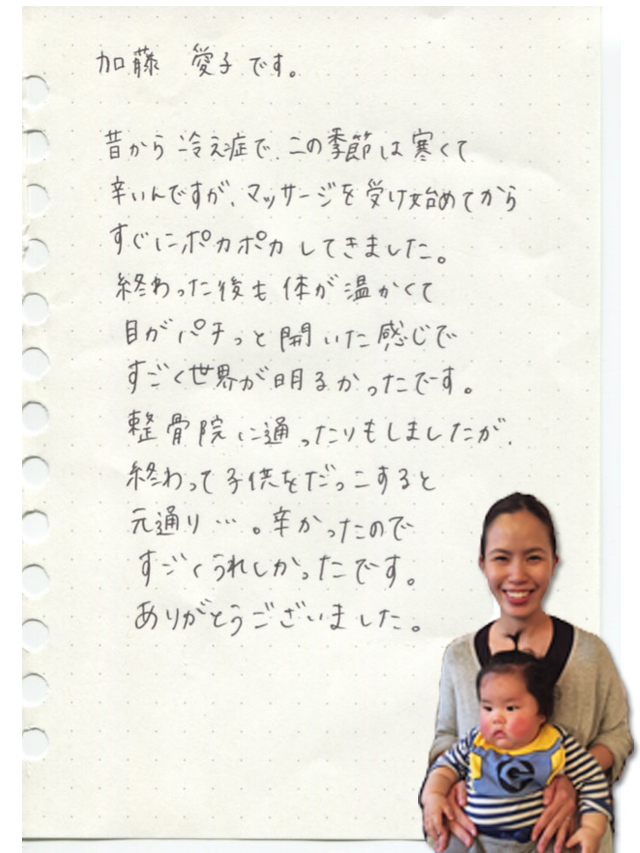 加藤 愛子です。
昔から冷え症で、この季節は寒くて
辛いんですが、マッサージを受け始めてから
すぐにポカポカしてきました。
終わった後も体が温かくて
目がパチっと開いた感じで
すごく世界が明るかったです。
整骨院に通ったりもしましたが、
終わって子供をだっこすると
元通り…。辛かったので
すごくうれしかったです。
ありがとうございました。